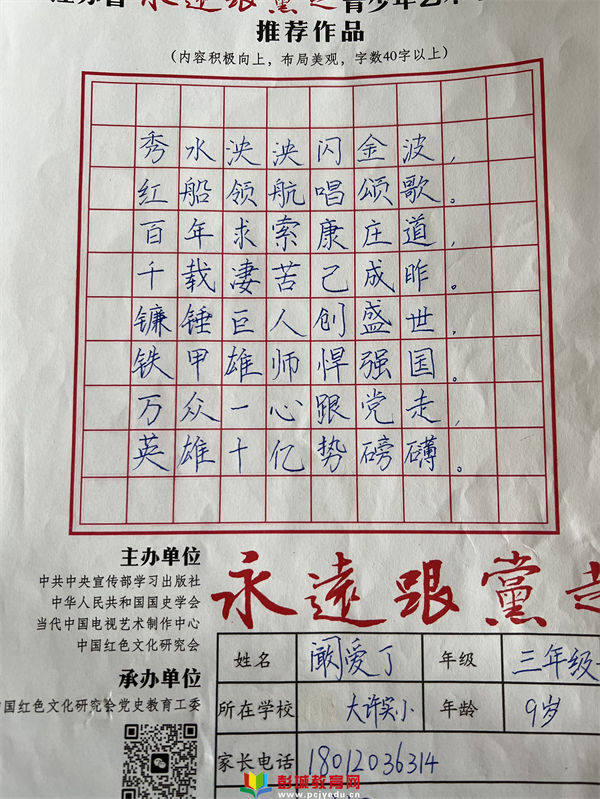 永遠跟黨走青少年艺术
推荐作品
（内容积极向上，布局美观，字数40字以上）
秀水泱泱闪金波，
红船领航唱颂歌。
百年求索康庄道，
千载凄苦已成昨。
镰锤巨人创盛世，
铁甲雄师悍强国。
万众一心跟党走，
英雄十亿势磅礴。
主办单位
中共中央宣传部学习出版社
中华人民共和国国史学会
当代中国电视艺术制作中心
中国红色文化研究会
承办单位
中国红色文化研究会党史教育工委
永遠跟黨走
姓名 阚爱丁 年级 三年级
所在学校 大许实小 年龄 9岁
家长电话 18012036314
彭城教育网
www.pcjyedu.cn